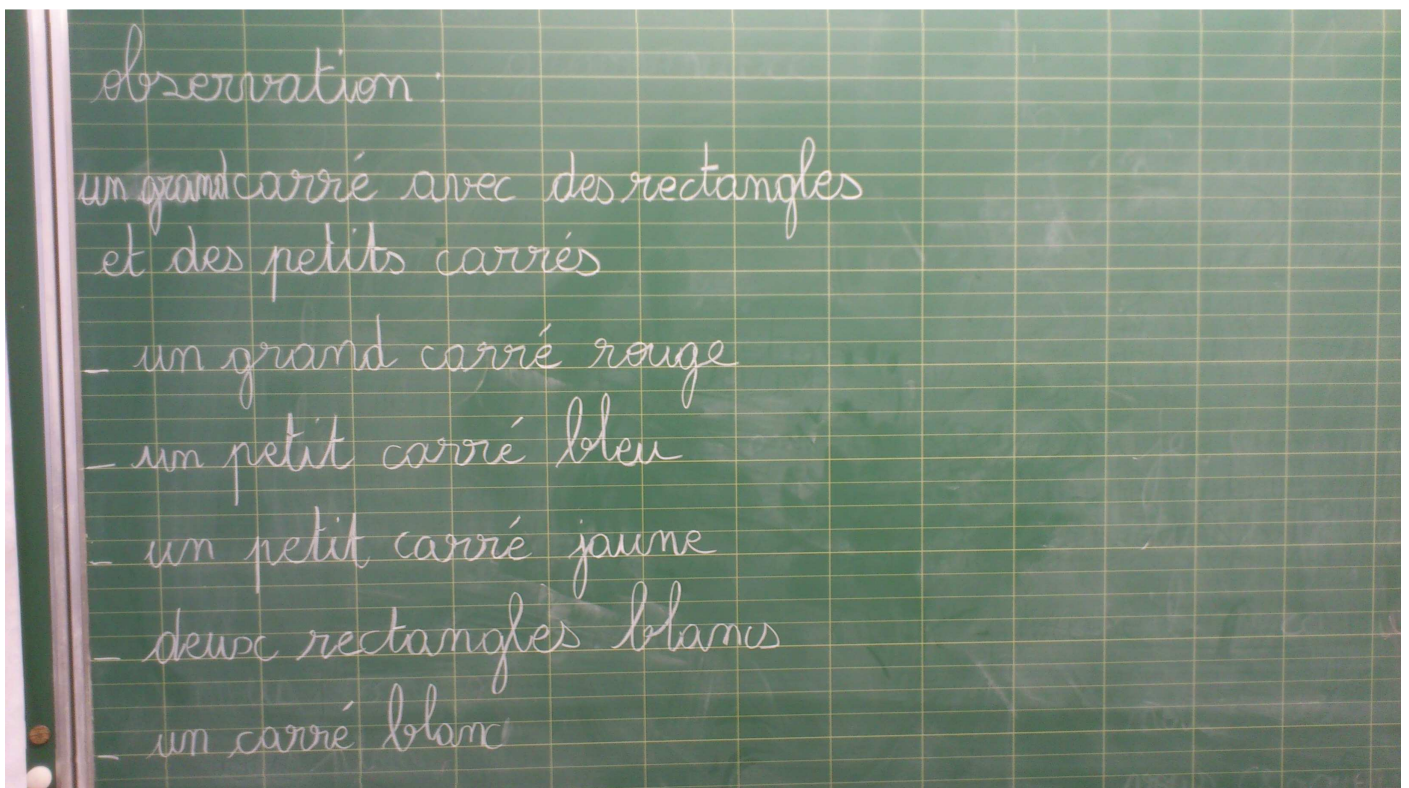 observation :
un grand carré avec des rectangles
et des petits carrés
_ un grand carré rouge
_ un petit carré bleu
_ un petit carré jaune
_ deux rectangles blancs
_ un carré blanc